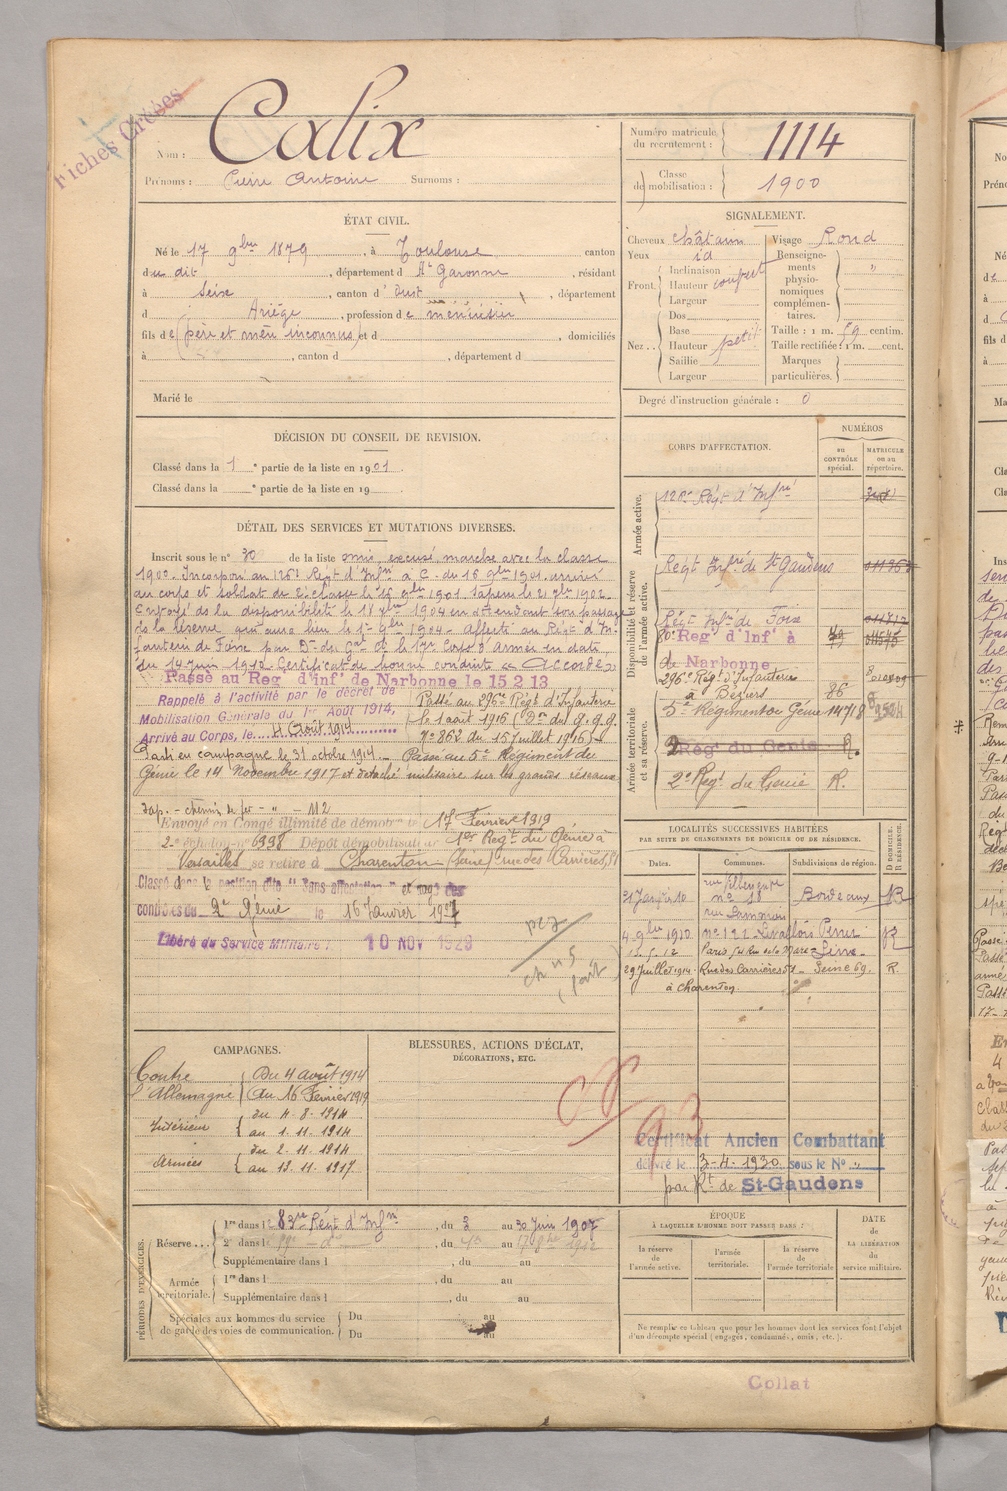 Fiches Créées
Nom : Calix
Prénoms : Pierre Antoine Surnoms :
Numéro matricule du recrutement : 1114
Classe de mobilisation : 1900
ÉTAT CIVIL.
Né le 17 9bre 1879, à Toulouse canton
du dit, département d Hte Garonne, résidant
à Seix, canton d' Oust, département
d Ariège, profession de menuisier
fils de (père et mère inconnus) et d , domiciliés
à , canton d , département d
Marié le
SIGNALEMENT.
Cheveux châtain Visage Rond
Yeux id Renseignements physionomiques complémentaires. "
Front. Inclinaison
Hauteur
Largeur
Nez.. Dos
Base
Hauteur petit
Saillie
Largeur
Taille : 1 m. 59 centim.
Taille rectifiée : 1 m. cent.
Marques particulières.
Degré d'instruction générale : 0
DÉCISION DU CONSEIL DE REVISION.
Classé dans la 1e partie de la liste en 1901.
Classé dans la e partie de la liste en 19
CORPS D'AFFECTATION.
NUMÉROS
au CONTRÔLE spécial.
MATRICULE ou au répertoire.
Armée active.
126e Régt d'Infrie
Disponibilité et réserve de l'armée active.
Régt Infrie de St Gaudens
Régt Infie de Foix
80e Reg' d'Inf' à
de Narbonne
296e Régt d'Infanterie
à Béziers 86
Armée territoriale et sa réserve.
5e Régiment du Génie 14718
2 Rég' du Genie R.
2e Regt du Genie R.
DÉTAIL DES SERVICES ET MUTATIONS DIVERSES.
Inscrit sous le n° 30 de la liste omis, excusé marche avec la classe
1900. Incorporé au 126e Régt d'Infie à c. du 16 9bre 1901. arrivé
au corps et soldat de 2e classe le 16 9bre 1901. Sapeur le 21 7bre 1902.
Envoyé ds la disponibilité le 18 7bre 1904 en attendant son passage
ds la réserve qui aura lieu le 1er 9bre 1904. Affecté au Régt d'In-
fanterie de Foix par Don du Gal Ct le 17e Corps d'Armée en date
du 14 Juin 1910. Certificat de bonne conduite "Accordé"
Passé au Reg' d'inf' de Narbonne le 15 2 13
Rappelé à l'activité par le décret de
Mobilisation Générale du 1er Août 1914,
Arrivé au Corps, le 4 Août 1914
Passé au 296e Régt d'Infanterie
le 1 août 1916 (Don du G.Q.G.
N° 862 du 15 Juillet 1916)
Parti en campagne le 31 octobre 1914 - Passé au 5e Régiment du
Génie le 14 Novembre 1917 et détaché militaire sur les grands réseaux
Sap. - chemin de fer - " - M2
Envoyé en Congé illimité de démobon le 17 Février 1919
2e échelon n° 6938 Dépôt démobilisateur 1er Régt du Génie à
Versailles se retire à Charenton (Seine) rue des Carrières, 51
Classé dans la position dite "Sans affectation" et rayé des
contrôles du 2e Génie le 16 Janvier 1927
Libéré du Service Militaire : 10 NOV 1928
LOCALITÉS SUCCESSIVES HABITÉES
PAR SUITE DE CHANGEMENTS DE DOMICILE OU DE RÉSIDENCE.
Dates. Communes. Subdivisions de région. D DOMICILE. R RÉSIDENCE.
31 Janvier 10 n° 18 Bordeaux
4 9bre 1910 n° 122 Levallois Perret Seine R
Paris
29 Juillet 1914. Rue des Carrières 51 - Seine 69. R.
à Charenton.
CAMPAGNES.
Contre l'Allemagne
Du 4 août 1914
Au 16 Février 1919
Intérieur
du 4. 8. 1914
au 1. 11. 1914
Armées
du 2. 11. 1914
au 13. 11. 1917.
BLESSURES, ACTIONS D'ÉCLAT,
DÉCORATIONS, ETC.
Certificat Ancien Combattant
délivré le 3-4-1930 sous le N° "
par Rt de St-Gaudens
PÉRIODES D'EXERCICES.
Réserve... 1re dans le 83me Régt d'Infie, du 3 au 30 Juin 1907
2e dans l , du au
Supplémentaire dans l , du au
Armée territoriale. 1re dans l , du au
Supplémentaire dans l , du au
Spéciales aux hommes du service
de garde des voies de communication.
Du au
Du au
ÉPOQUE
À LAQUELLE L'HOMME DOIT PASSER DANS :
la réserve de l'armée active.
l'armée territoriale.
la réserve de l'armée territoriale
DATE de LA LIBÉRATION du service militaire.
Ne remplir ce tableau que pour les hommes dont les services font l'objet
d'un décompte spécial (engagés, condamnés, omis, etc.).
Collat